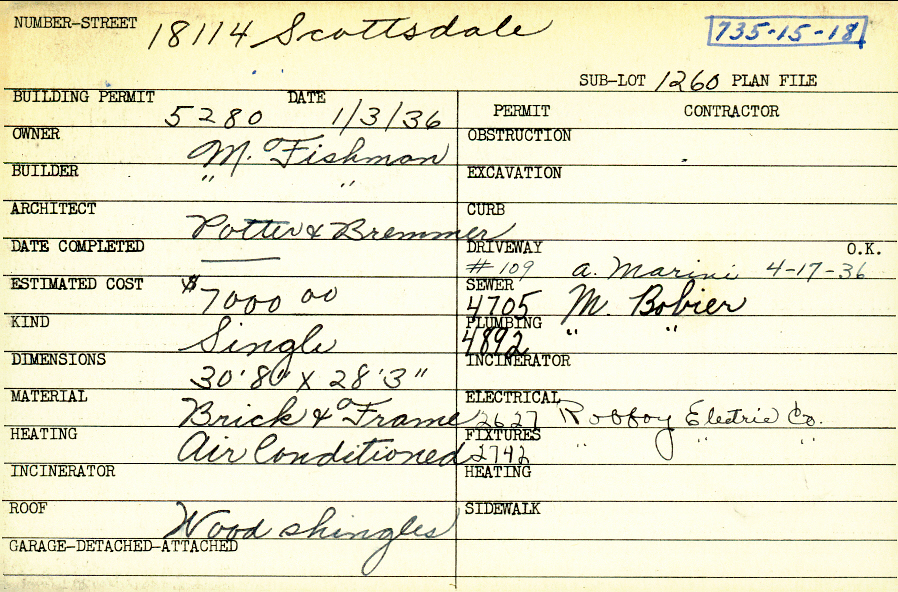 NUMBER-STREET 18114 Scottsdale 735-15-18
SUB-LOT 1260 PLAN FILE
BUILDING PERMIT 5280 DATE 1/3/36
PERMIT CONTRACTOR
OWNER M. Fishman
OBSTRUCTION
BUILDER " "
EXCAVATION
ARCHITECT Potter & Bremmer
CURB
DATE COMPLETED ——
DRIVEWAY #109 A. Marini 4-17-36 O.K.
ESTIMATED COST $7000 00
SEWER 4705 M. Bobier
KIND Single
PLUMBING 4892 " "
DIMENSIONS 30'8" X 28'3"
INCINERATOR
MATERIAL Brick & Frame
ELECTRICAL 2627 Electric Co.
HEATING Air Conditioned
FIXTURES 2742 " " "
INCINERATOR
HEATING
ROOF Wood shingles
SIDEWALK
GARAGE-DETACHED-ATTACHED